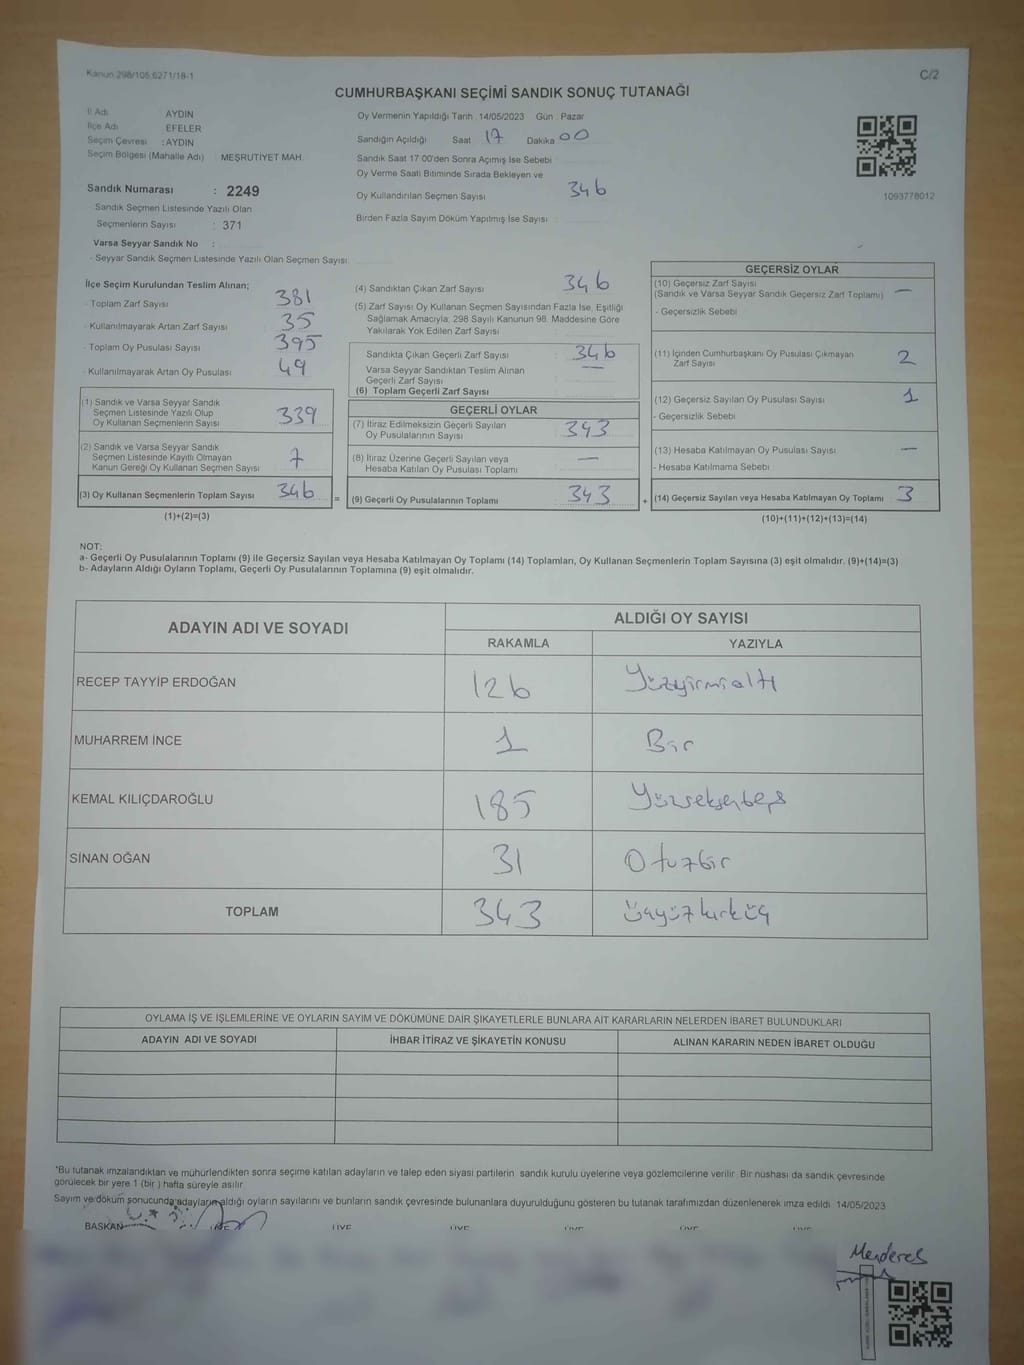 Kanun 298/105,6271/18-1
C/2
CUMHURBAŞKANI SEÇİMİ SANDIK SONUÇ TUTANAĞI
İl Adı AYDIN
İlçe Adı EFELER
Seçim Çevresi : AYDIN
Seçim Bölgesi (Mahalle Adı) : MEŞRUTİYET MAH.
Sandık Numarası : 2249
Sandık Seçmen Listesinde Yazılı Olan
Seçmenlerin Sayısı : 371
Varsa Seyyar Sandık No :
- Seyyar Sandık Seçmen Listesinde Yazılı Olan Seçmen Sayısı
Oy Vermenin Yapıldığı Tarih : 14/05/2023 Gün : Pazar
Sandığın Açıldığı Saat 17 Dakika 00
Sandık Saat 17.00'den Sonra Açımış İse Sebebi
Oy Verme Saati Bitiminde Sırada Bekleyen ve
Oy Kullandırılan Seçmen Sayısı 346
Birden Fazla Sayım Döküm Yapılmış İse Sayısı
1093778012
İlçe Seçim Kurulundan Teslim Alınan;
- Toplam Zarf Sayısı 381
- Kullanılmayarak Artan Zarf Sayısı 35
- Toplam Oy Pusulası Sayısı 395
- Kullanılmayarak Artan Oy Pusulası 49
(1) Sandık ve Varsa Seyyar Sandık
Seçmen Listesinde Yazılı Olup
Oy Kullanan Seçmenlerin Sayısı 339
(2) Sandık ve Varsa Seyyar Sandık
Seçmen Listesinde Kayıtlı Olmayan
Kanun Gereği Oy Kullanan Seçmen Sayısı 7
(3) Oy Kullanan Seçmenlerin Toplam Sayısı 346 =
(1)+(2)=(3)
(4) Sandıktan Çıkan Zarf Sayısı 346
(5) Zarf Sayısı Oy Kullanan Seçmen Sayısından Fazla İse, Eşitliği
Sağlamak Amacıyla; 298 Sayılı Kanunun 98. Maddesine Göre
Yakılarak Yok Edilen Zarf Sayısı
Sandıkta Çıkan Geçerli Zarf Sayısı : 346
Varsa Seyyar Sandıktan Teslim Alınan
Geçerli Zarf Sayısı : —
(6) Toplam Geçerli Zarf Sayısı
GEÇERLİ OYLAR
(7) İtiraz Edilmeksizin Geçerli Sayılan
Oy Pusulalarının Sayısı : 343
(8) İtiraz Üzerine Geçerli Sayılan veya
Hesaba Katılan Oy Pusulası Toplamı : —
(9) Geçerli Oy Pusulalarının Toplamı : 343 +
GEÇERSİZ OYLAR
(10) Geçersiz Zarf Sayısı —
(Sandık ve Varsa Seyyar Sandık Geçersiz Zarf Toplamı)
- Geçersizlik Sebebi
(11) İçinden Cumhurbaşkanı Oy Pusulası Çıkmayan
Zarf Sayısı 2
(12) Geçersiz Sayılan Oy Pusulası Sayısı 1
- Geçersizlik Sebebi
(13) Hesaba Katılmayan Oy Pusulası Sayısı —
- Hesaba Katılmama Sebebi
(14) Geçersiz Sayılan veya Hesaba Katılmayan Oy Toplamı : 3
(10)+(11)+(12)+(13)=(14)
NOT:
a- Geçerli Oy Pusulalarının Toplamı (9) ile Geçersiz Sayılan veya Hesaba Katılmayan Oy Toplamı (14) Toplamları, Oy Kullanan Seçmenlerin Toplam Sayısına (3) eşit olmalıdır. (9)+(14)=(3)
b- Adayların Aldığı Oyların Toplamı, Geçerli Oy Pusulalarının Toplamına (9) eşit olmalıdır.
ADAYIN ADI VE SOYADI
ALDIĞI OY SAYISI
RAKAMLA YAZIYLA
RECEP TAYYİP ERDOĞAN 126 Yüzyirmialtı
MUHARREM İNCE 1 Bir
KEMAL KILIÇDAROĞLU 185 Yüzseksenbeş
SİNAN OĞAN 31 Otuzbir
TOPLAM 343 Üçyüzkırküç
OYLAMA İŞ VE İŞLEMLERİNE VE OYLARIN SAYIM VE DÖKÜMÜNE DAİR ŞİKAYETLERLE BUNLARA AİT KARARLARIN NELERDEN İBARET BULUNDUKLARI
ADAYIN ADI VE SOYADI İHBAR İTİRAZ VE ŞİKAYETİN KONUSU ALINAN KARARIN NEDEN İBARET OLDUĞU
*Bu tutanak imzalandıktan ve mühürlendikten sonra seçime katılan adayların ve talep eden siyasi partilerin sandık kurulu üyelerine veya gözlemcilerine verilir. Bir nüshası da sandık çevresinde
görülecek bir yere 1 (bir ) hafta süreyle asılır.
Sayım ve döküm sonucunda adayların aldığı oyların sayılarını ve bunların sandık çevresinde bulunanlara duyurulduğunu gösteren bu tutanak tarafımızdan düzenlenerek imza edildi. 14/05/2023
BAŞKAN ÜYE ÜYE ÜYE ÜYE ÜYE
Menderes